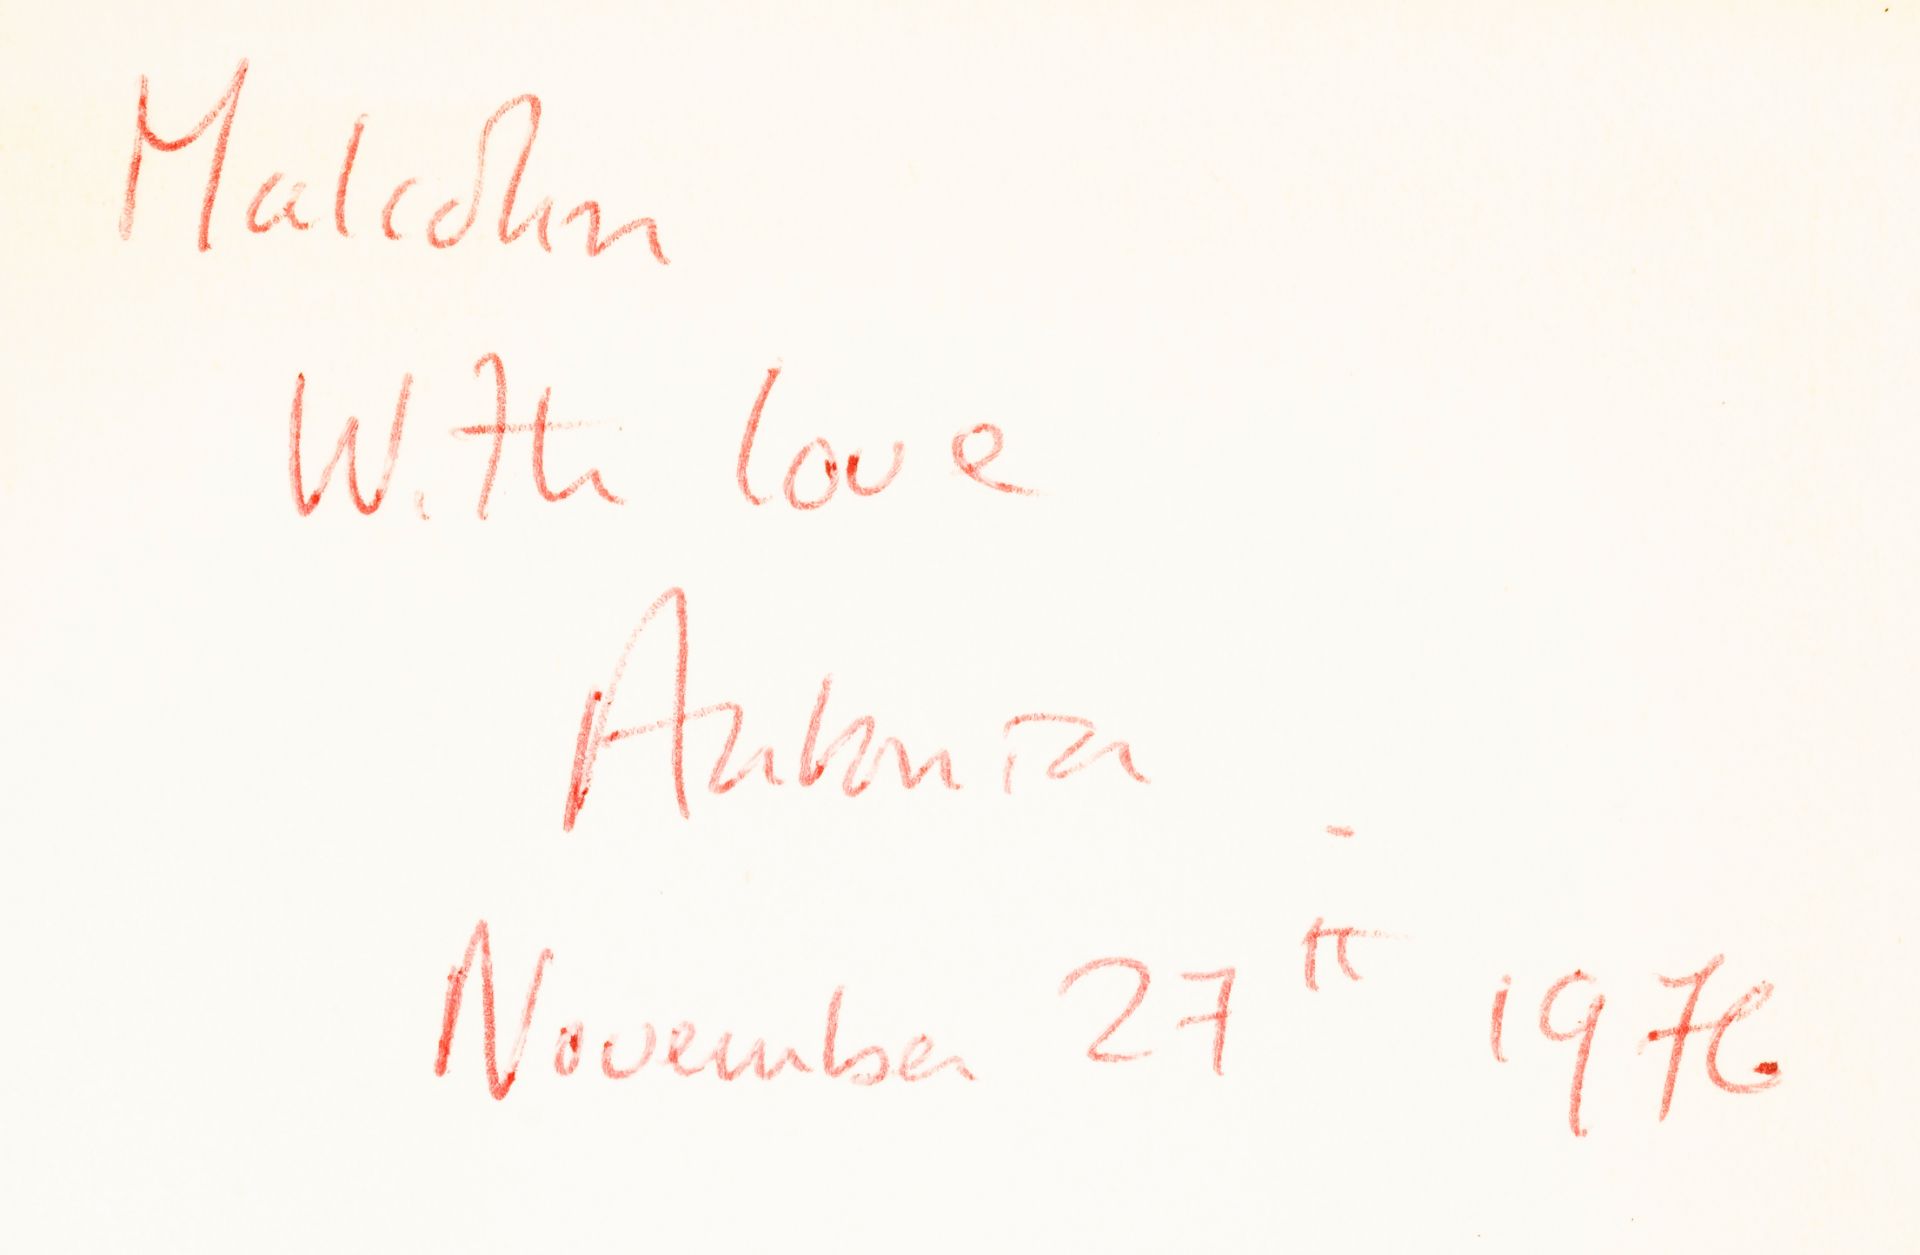 Malcolm
With love
Antonia
November 27th 1976